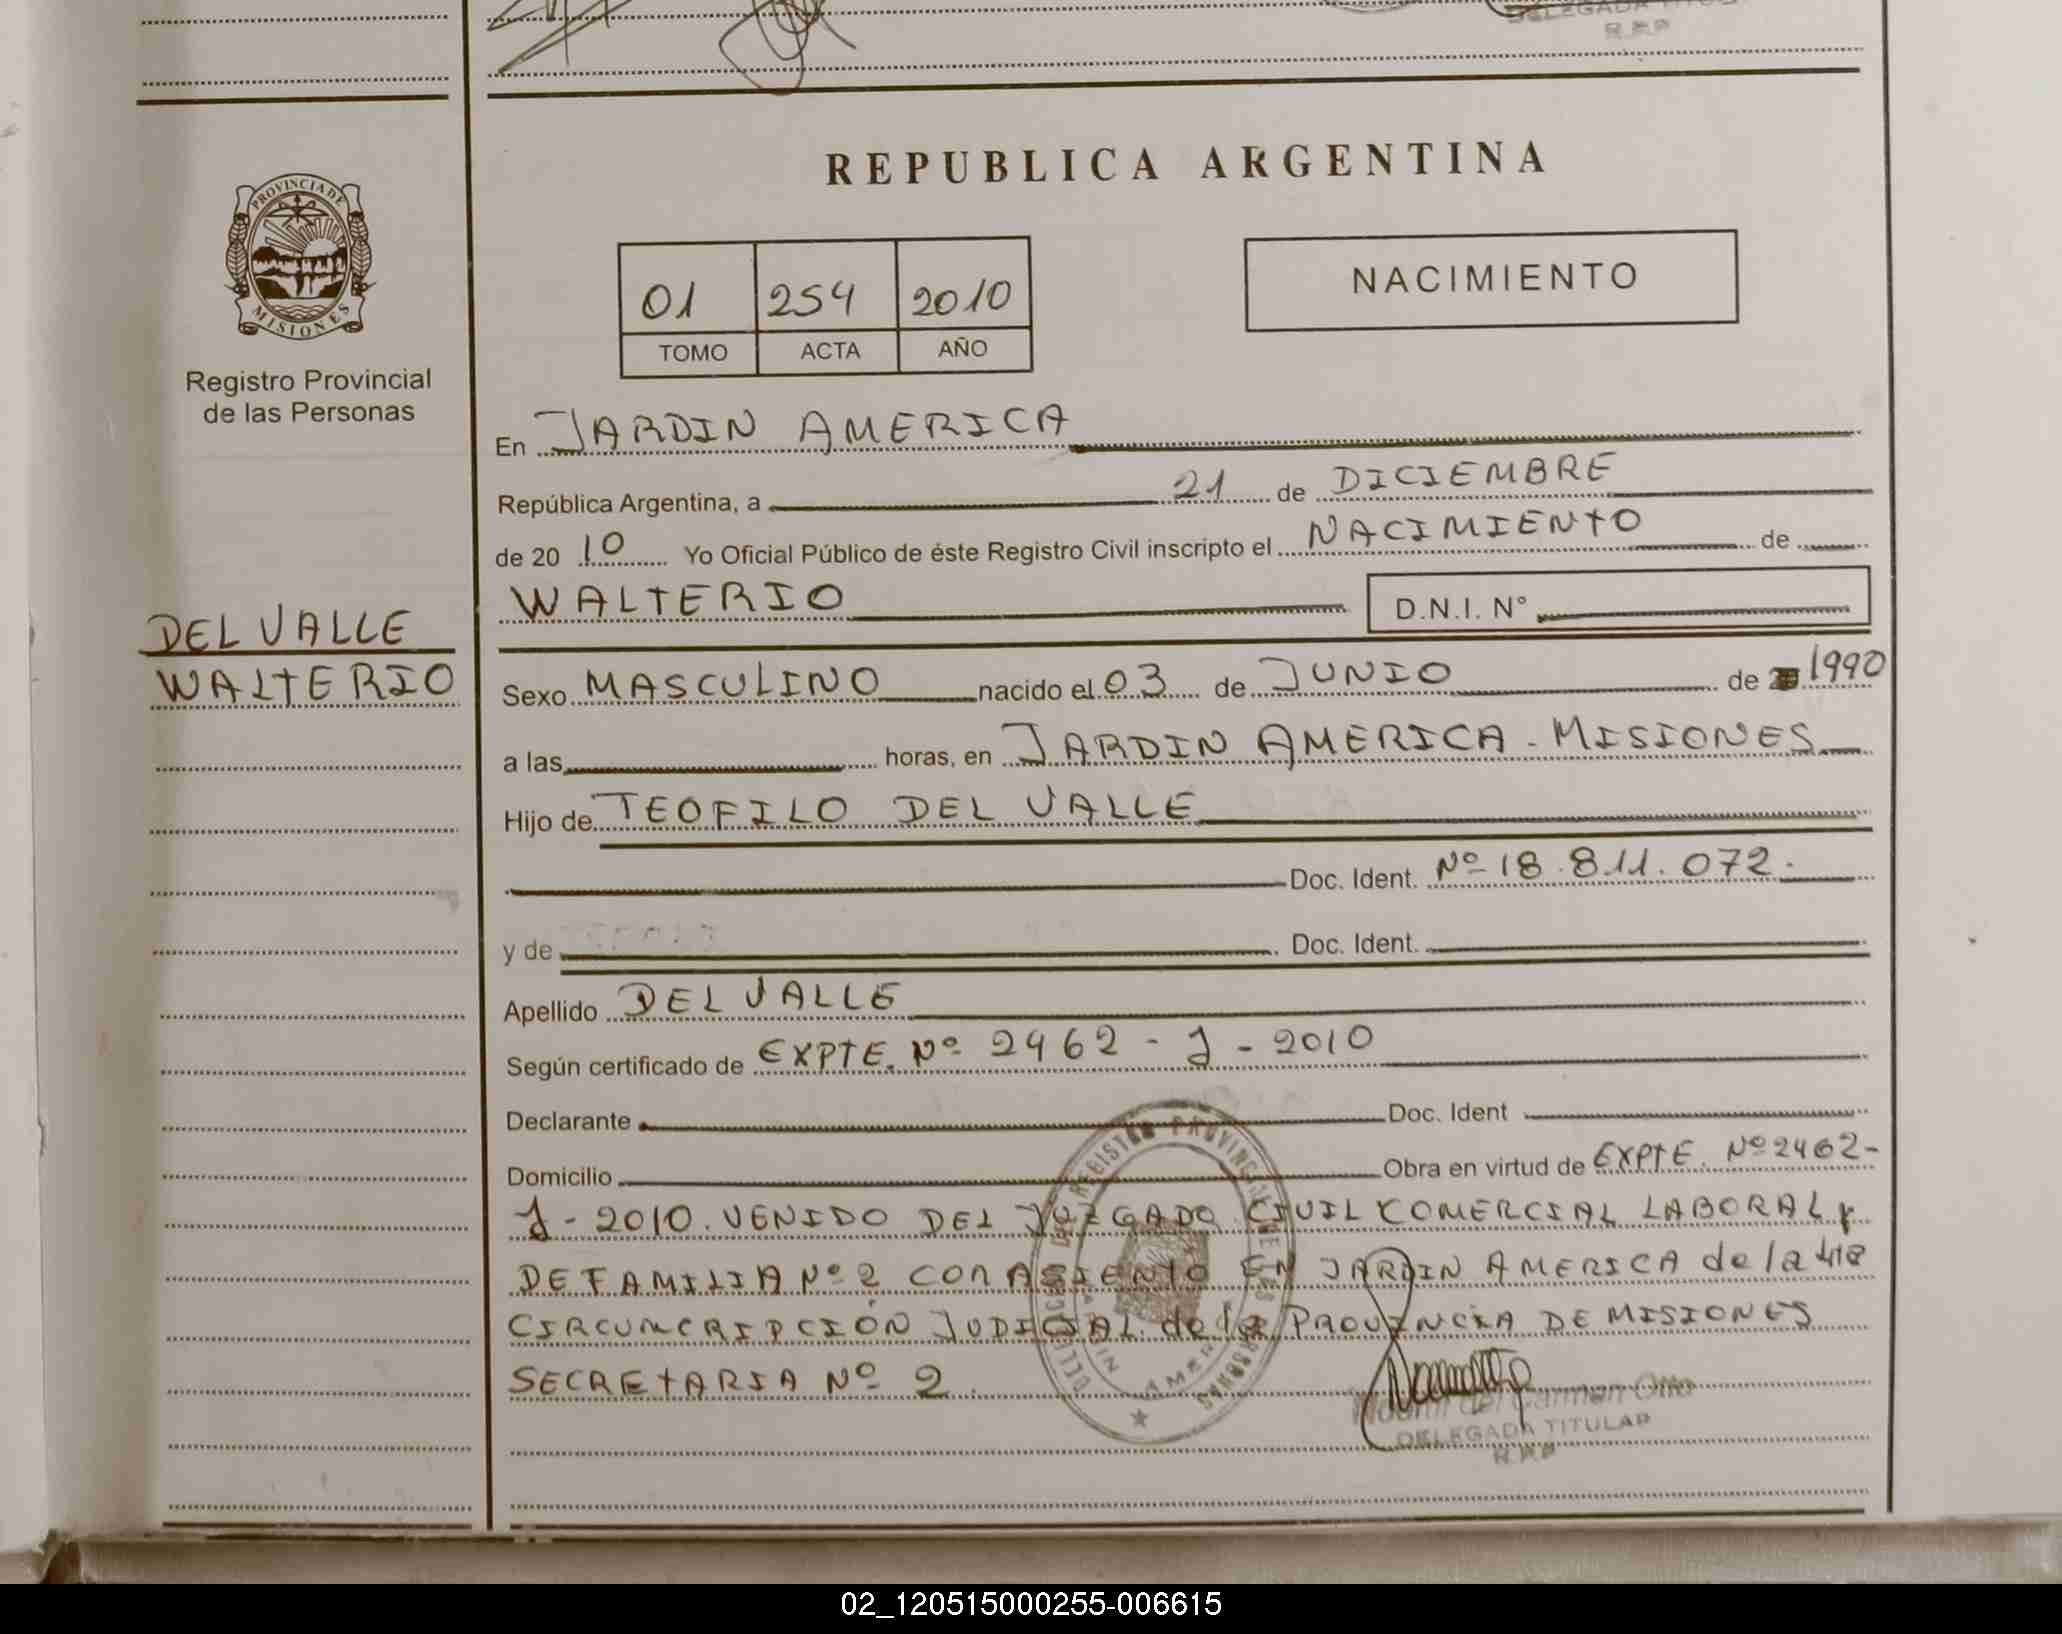 DELEGADA TITULAR
R.P.P
REPUBLICA ARGENTINA
PROVINCIA DE
MISIONES
Registro Provincial
de las Personas
01 254 2010
TOMO ACTA AÑO
NACIMIENTO
En JARDIN AMERICA
República Argentina, a 21 de DICIEMBRE
de 20 10 Yo Oficial Público de éste Registro Civil inscripto el NACIMIENTO de
WALTERIO D.N.I. N°
DEL VALLE
WALTERIO
Sexo MASCULINO nacido el 03 de JUNIO de 1990
a las horas, en JARDIN AMERICA - MISIONES
Hijo de TEOFILO DEL VALLE
Doc. Ident. Nº 18.811.072.
y de Doc. Ident.
Apellido DEL VALLE
Según certificado de EXPTE. Nº 2462 - J - 2010
Declarante Doc. Ident
Domicilio Obra en virtud de EXPTE. Nº 2462-
J - 2010. VENIDO DEL JUZGADO CIVIL COMERCIAL LABORAL y
DE FAMILIA Nº 2 CON ASIENTO EN JARDIN AMERICA de la 4ta
CIRCUNCRIPCIÓN JUDICIAL de la PROVINCIA DE MISIONES
SECRETARIA Nº 2
del Carmen Otto
DELEGADA TITULAR
R.P.P
02_120515000255-006615